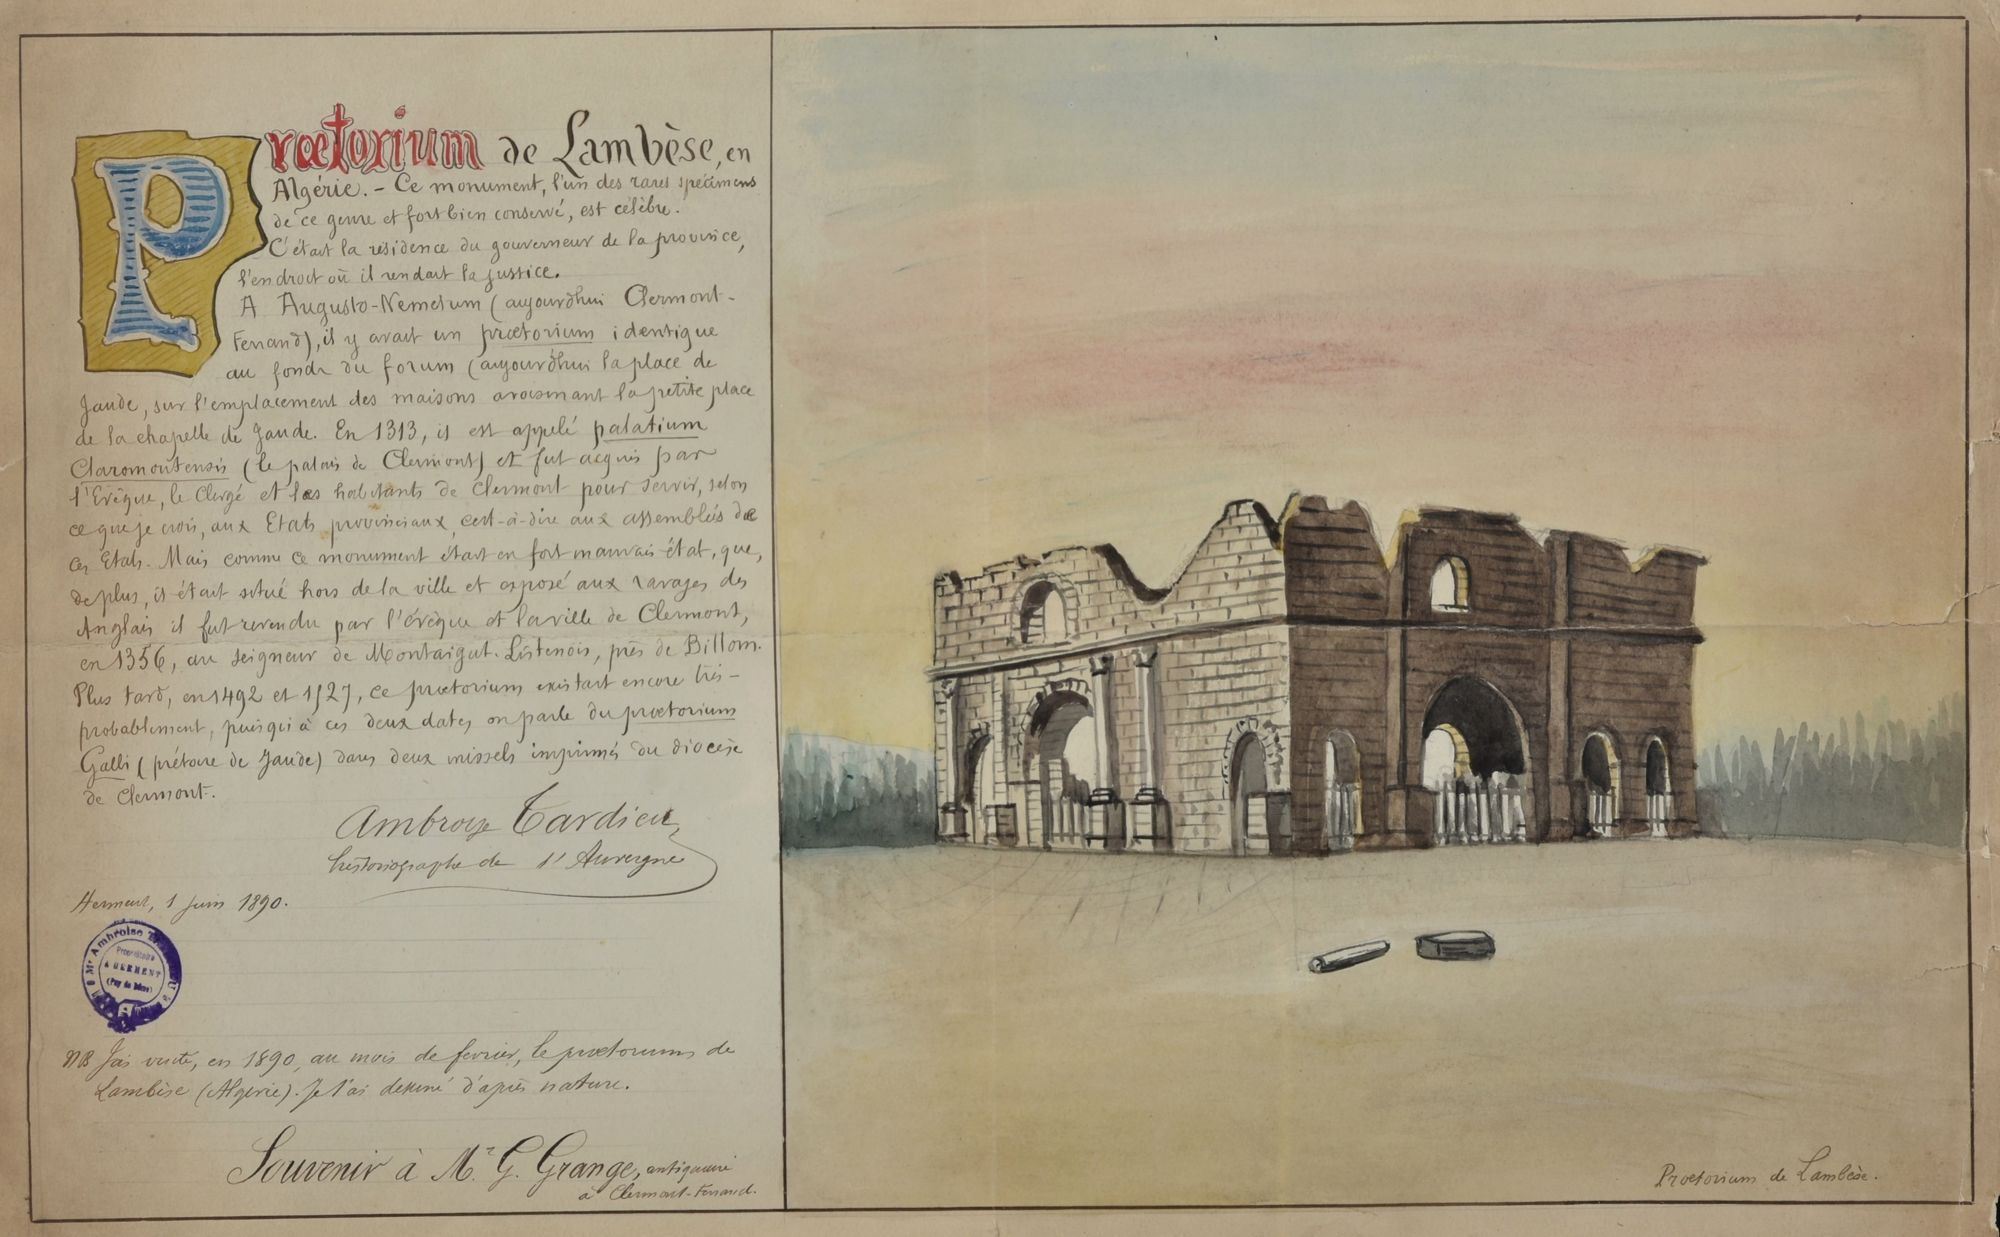 Prœtorium de Lambèse, en
Algérie. - Ce monument, l'un des rares spécimens
de ce genre et fort bien conservé, est célèbre.
C'était la résidence du gouverneur de la province,
l'endroit où il rendait la justice.
A Augusto-Nemetum (aujourd'hui Clermont-
Ferrand), il y avait un prœtorium identique
au fond du forum (aujourd'hui la place de
Jaude, sur l'emplacement des maisons avoisinant la petite place
de la chapelle de Jaude. En 1313, il est appelé palatium
Claromontensis (le palais de Clermont) et fut acquis par
l'Evêque, le Clergé et les habitants de Clermont pour servir, selon
ce que je crois, aux Etats provinciaux, c'est-à-dire aux assemblés de
ces Etats. Mais comme ce monument était en fort mauvais état, que,
de plus, il était situé hors de la ville et exposé aux ravages des
Anglais il fut revendu par l'évêque et la ville de Clermont,
en 1356, au seigneur de Montaigut-Listenois, près de Billom.
Plus tard, en 1492 et 1527, ce prœtorium existait encore très-
probablement, puisqu'à ces deux dates on parle du prœtorium
Galli (prétoire de Jaude) dans deux missels imprimés du diocèse
de Clermont.
Ambroise Tardieu,
historiographe de l'Auvergne
Herment, 1 juin 1890.
Mr Ambroise
Propriétaire
A HERMENT
(Puy de Dôme)
NB J'ai visité, en 1890, au mois de février, le prœtorium de
Lambèse (Algérie). Je l'ai dessiné d'après nature.
Souvenir à Mr G. Grange, antiquaire
à Clermont-Ferrand.
Prœtorium de Lambèse.